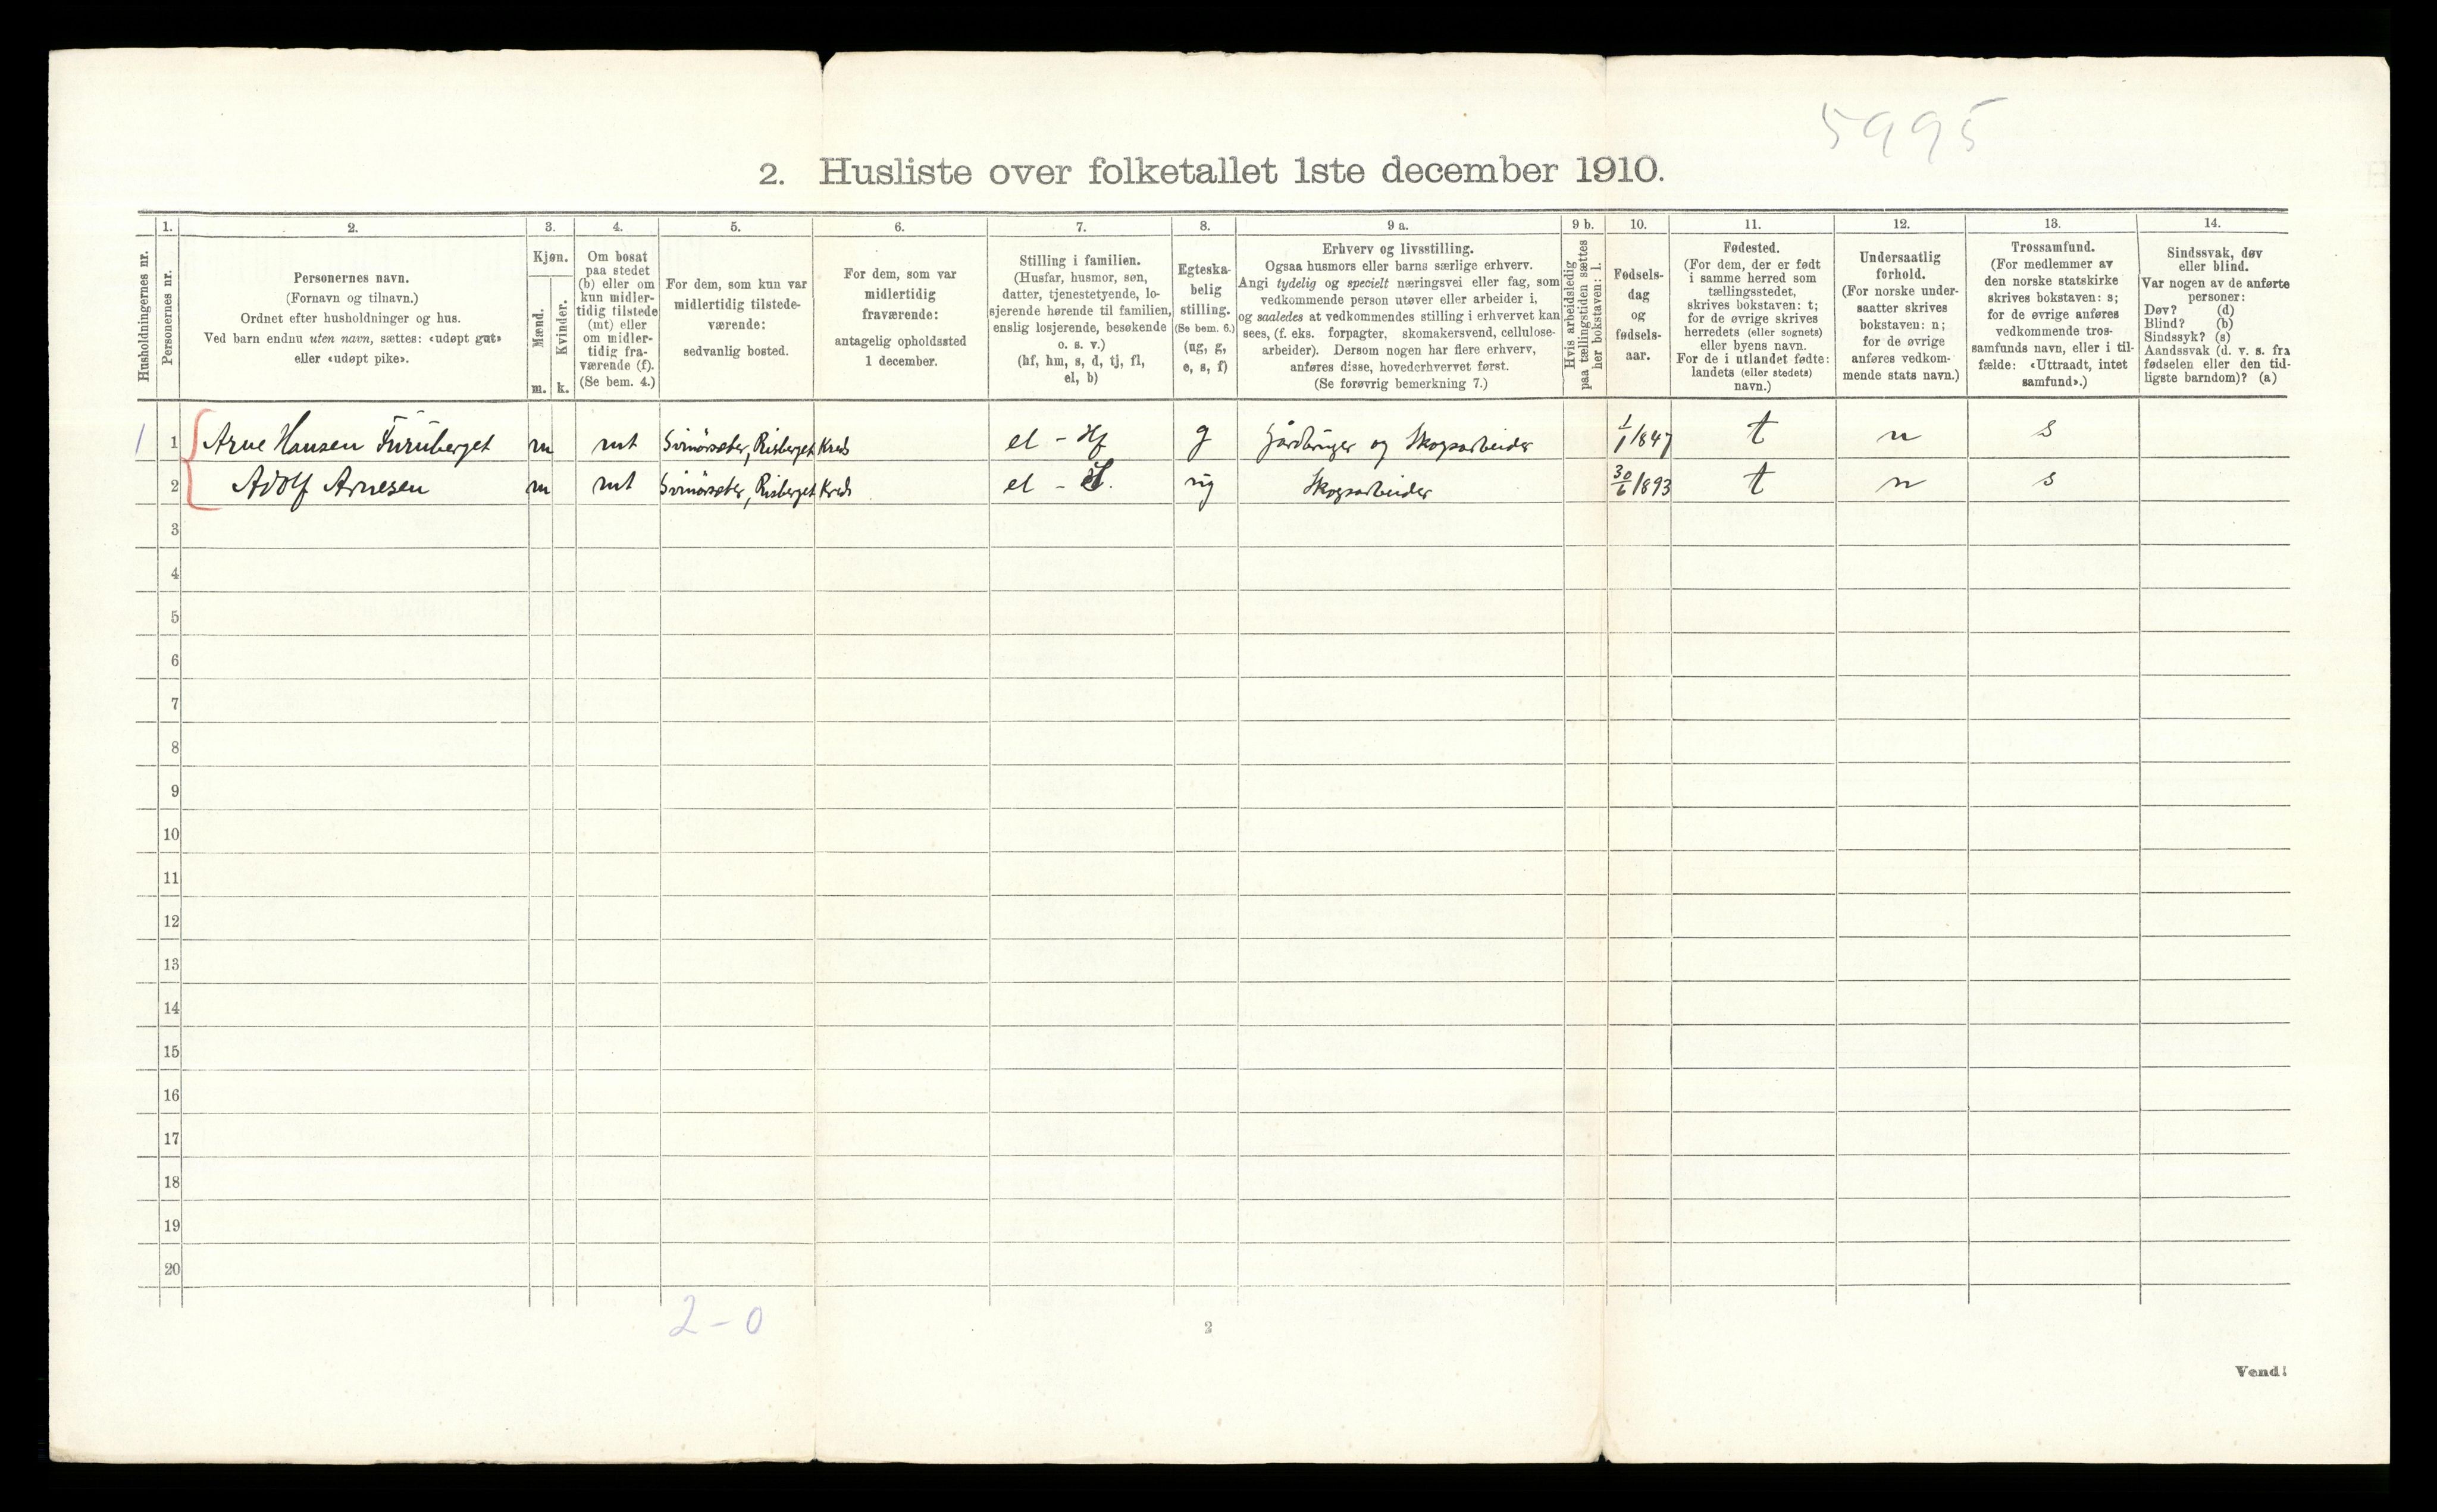 5995
2. Husliste over folketallet 1ste december 1910.
Husholdningernes nr.
1.
Personernes nr.
2.
Personernes navn.
(Fornavn og tilnavn.)
Ordnet efter husholdninger og hus.
Ved barn endnu uten navn, sættes: «udøpt gut»
eller «udøpt pike».
3.
Kjøn.
Mænd.
m.
Kvinder.
k.
4.
Om bosat
paa stedet
(b) eller om
kun midler-
tidig tilstede
(mt) eller
om midler-
tidig fra-
værende (f).
(Se bem. 4.)
5.
For dem, som kun var
midlertidig tilstede-
værende:
sedvanlig bosted.
6.
For dem, som var
midlertidig
fraværende:
antagelig opholdssted
1 december.
7.
Stilling i familien.
(Husfar, husmor, søn,
datter, tjenestetyende, lo-
sjerende hørende til familien,
enslig losjerende, besøkende
o. s. v.)
(hf, hm, s, d, tj, fl,
el, b)
8.
Egteska-
belig
stilling.
(Se bem. 6.)
(ug, g,
e, s, f)
9 a.
Erhverv og livsstilling.
Ogsaa husmors eller barns særlige erhverv.
Angi tydelig og specielt næringsvei eller fag, som
vedkommende person utøver eller arbeider i,
og saaledes at vedkommendes stilling i erhvervet kan
sees, (f. eks. forpagter, skomakersvend, cellulose-
arbeider). Dersom nogen har flere erhverv,
anføres disse, hovederhvervet først.
(Se forøvrig bemerkning 7.)
9 b.
Hvis arbeidsledig
paa tællingstiden sættes
her bokstaven: l.
10.
Fødsels-
dag
og
fødsels-
aar.
11.
Fødested.
(For dem, der er født
i samme herred som
tællingsstedet,
skrives bokstaven: t;
for de øvrige skrives
herredets (eller sognets)
eller byens navn.
For de i utlandet fødte:
landets (eller stedets)
navn.)
12.
Undersaatlig
forhold.
(For norske under-
saatter skrives
bokstaven: n;
for de øvrige
anføres vedkom-
mende stats navn.)
13.
Trossamfund.
(For medlemmer av
den norske statskirke
skrives bokstaven: s;
for de øvrige anføres
vedkommende tros-
samfunds navn, eller i til-
fælde: «Uttraadt, intet
samfund».)
14.
Sindssvak, døv
eller blind.
Var nogen av de anførte
personer:
Døv? (d)
Blind? (b)
Sindssyk? (s)
Aandssvak (d. v. s. fra
fødselen eller den tid-
ligste barndom)? (a)
1 1 Arne Hansen Furuberget m mt Svinörseter, Risberget Kreds el - Hf g Gårdbruger og Skogsarbeider 1/1 1847 t n s
2 Adolf Arnesen m mt Svinörseter, Risberget Kreds el - ug Skogsarbeider 30/6 1893 t n s
3
4
5
6
7
8
9
10
11
12
13
14
15
16
17
18
19
20
2-0
2
Vend!